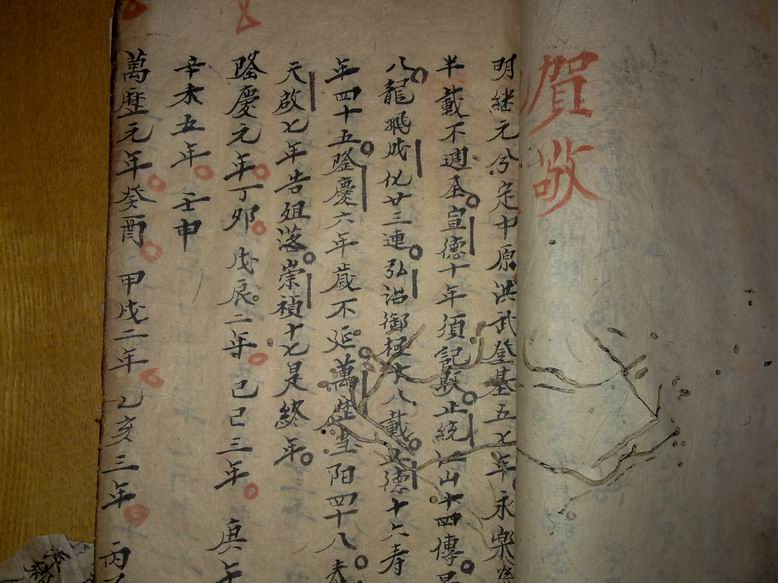 賀敬
明継元兮定中原洪武登基五七年永樂
半載不週全宣德十年須記數正統江山十四傳
八龍飛成化廿三連弘治御極十八載正德十六壽
年四十五隆慶六年歲不延萬歷当阳四十八
天啟七年告殂落崇禎十七是終年
隆慶元年丁卯 戊辰二年 己巳三年 庚午
辛未五年 壬申
萬歷元年癸酉 甲戌二年 乙亥三年 丙